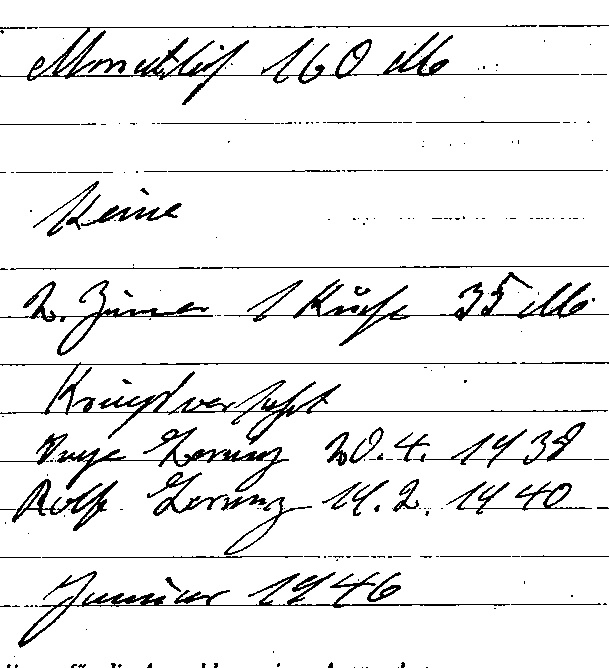 Monatlich 160 M
Keine
2. Zimmer 1 Küche 35 M.
Inge Lorenz 20. 4. 1938
Rolf Lorenz 14. 2. 1940
Januar 1946